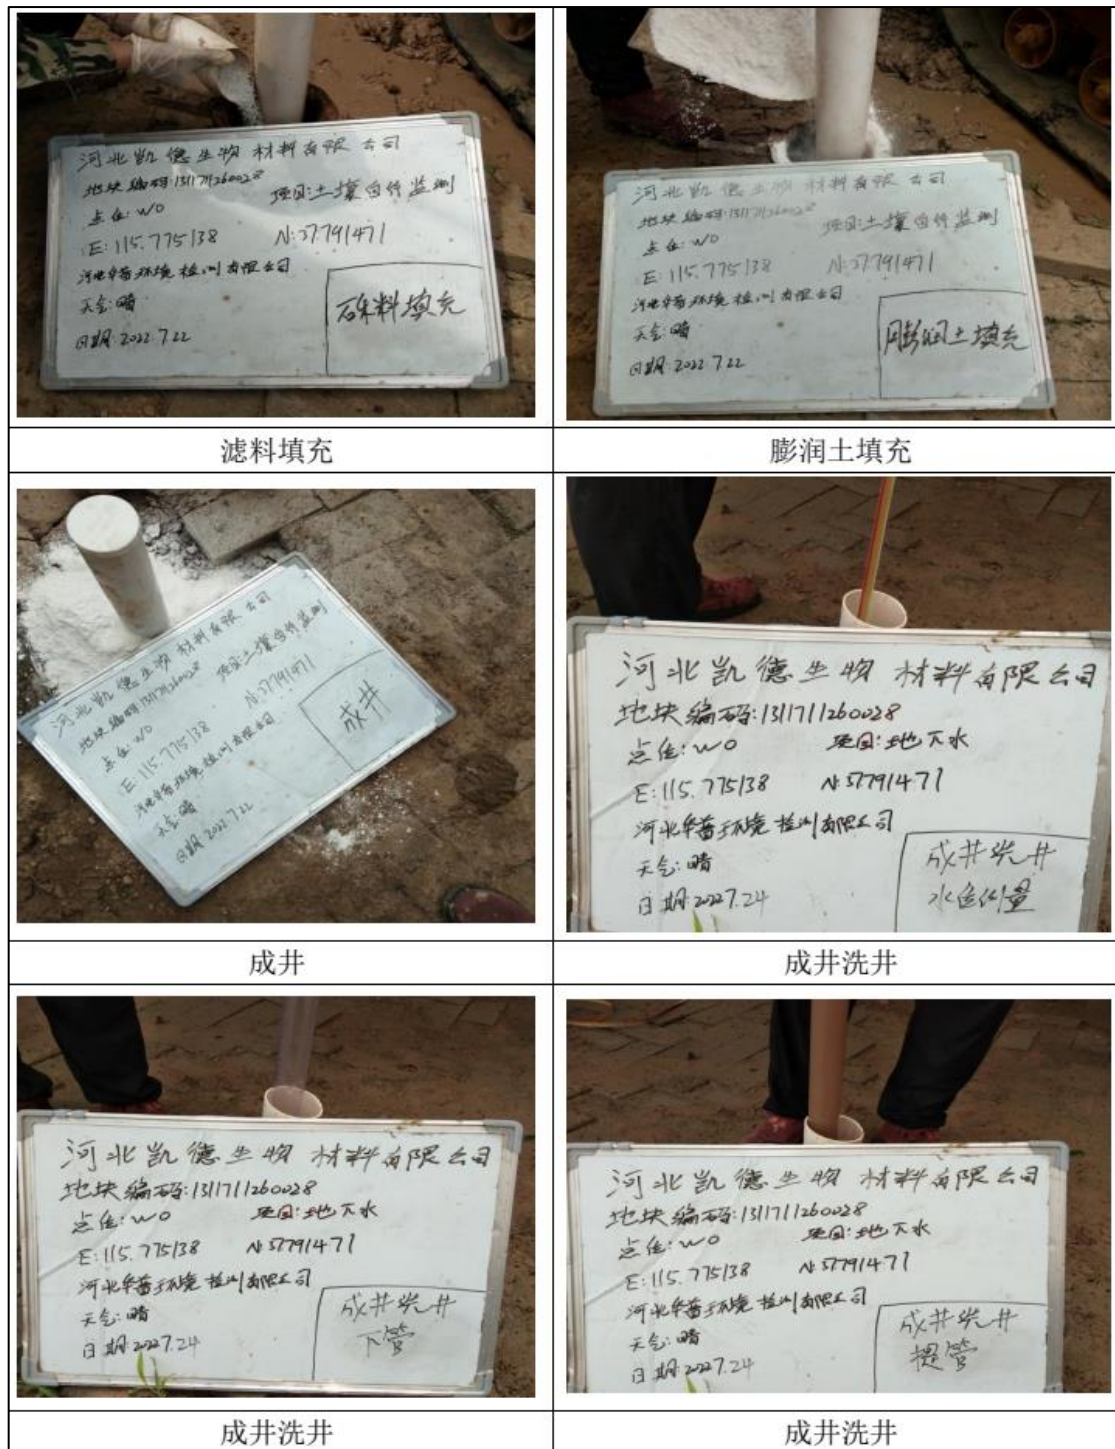 河北凯德生物材料有限公司
地块编码:1311711260028
项目:土壤自行监测
点位:W0
E:115.775138 N:37.791471
河北华普环境检测有限公司
天气:晴
日期:2022.7.22
砾料填充
河北凯德生物材料有限公司
地块编码:1311711260028
项目:土壤自行监测
点位:W0
E:115.775138 N:37.791471
河北华普环境检测有限公司
天气:晴
日期:2022.7.22
膨润土填充
滤料填充
膨润土填充
河北凯德生物材料有限公司
地块编码:1311711260028
项目:土壤自行监测
点位:W0
E:115.775138 N:37.791471
河北华普环境检测有限公司
天气:晴
日期:2022.7.22
成井
河北凯德生物材料有限公司
地块编码:1311711260028
点位:W0 项目:地下水
E:115.775138 N:37.791471
河北华普环境检测有限公司
天气:晴
日期:2022.7.24
成井洗井
水位测量
成井
成井洗井
河北凯德生物材料有限公司
地块编码:1311711260028
点位:W0 项目:地下水
E:115.775138 N:37.791471
河北华普环境检测有限公司
天气:晴
日期:2022.7.24
成井洗井
下管
河北凯德生物材料有限公司
地块编码:1311711260028
点位:W0 项目:地下水
E:115.775138 N:37.791471
河北华普环境检测有限公司
天气:晴
日期:2022.7.24
成井洗井
提管
成井洗井
成井洗井